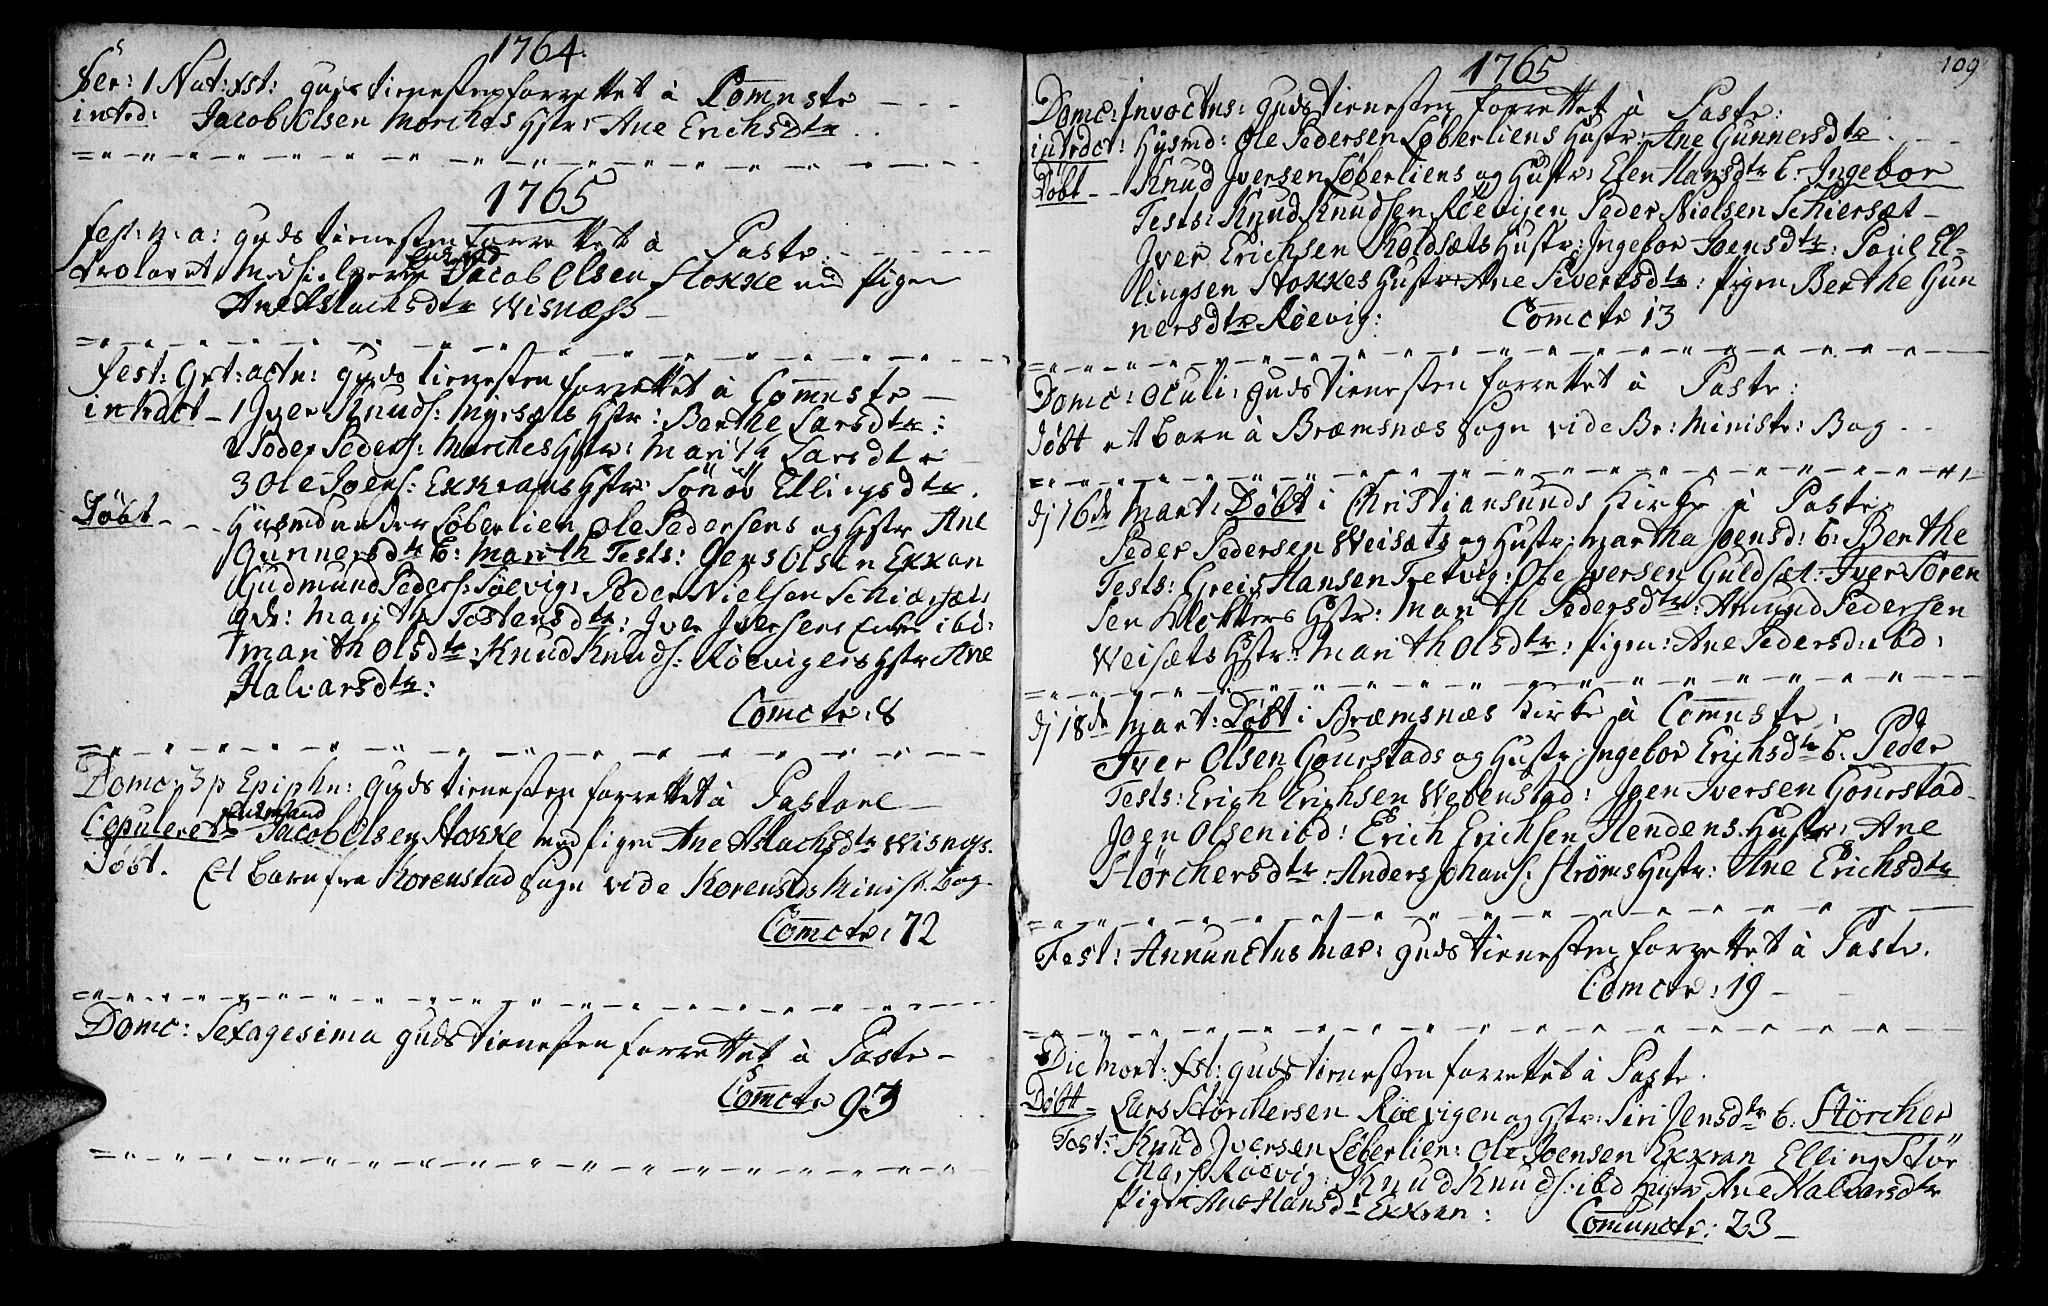 1764.
Fer: 1 Nat: Xst: gudstienesten forrettet à Commste
introd: Jacob Olsen Morches Hstr: Ane Erichsdtr
1765
fest: n: a: gudstienesten forrettet à Paste:
Trolovet Enkemd Jacob Olsen Stokke med Pigen
Ane Aslachsdtr Wisnæss
fest: Gxt: actn: gudstienesten forrettet à Commste
intrdct 1 Iver Knuds: Myrsæts Hstr: Berthe Larsdtr:
2 Peders: Morches Hstr: Marith Larsdtr
3 Ole Joens: Exkrans Hstr: Sönöv Ellingsdtr.
Döbt Huusmd under Löberlien Ole Pedersens og Hstr Ane
Gunnersdtr b: Marith Tests: Jens Olsen Exxran
Gudmund Peders: Röevig: Peder Nielsen Schiersæt:
qv: Marith Tostensdtr: Iver Iversens Enke ibd:
Marith Olsdtr: Knud Knuds: Röevigens Hstr Ane
Halvarsdtr:
Comctr: 8
Domc: 3 p Epiphn: gudstienesten forrettet à Pastore
Copuleret Enkemand Jacob Olsen Stokke med Pigen Ane Aslachsdtr Wisnæs.
Döbt. Et barn fra Korenstad Sogn vide Korenstds Minist: bog.
Comctr: 72
Domc: Sexagesima gudstienesten forrettet à Paste
Comctr 93
1765
109
Domc: Invoctus: gudstienesten forrettet à Paste:
intrdct: Husmd: Ole Pedersen Löberliens Hustr: Ane Gunnersdtr
Döbt Knud Iversen Löberliens og Hustr: Elen Hansdtr b: Ingebor
Tests: Knud Knudsen Röevigen Peder Nielsen Schiersæt
Iver Erichsen Koldsæts Hustr: Ingebor Joensdtr: Poul El-
lingsen Stokkes Hustr: Ane Sivertsdtr: Pigen Berthe Gun
nersdtr Röevig: Comctr 13
Domc: Oculi: gudstienesten forrettet à Paste:
Döbt et barn à Bræmsnæs Sogn vide Br: Ministr: Bog
dj 16de Mart: Döbt i Christiansunds Kirke à Paste
Peder Pedersen Weisæts og Hustr: Martha Joensd: b: Berthe
Tests: Greis Hansen Tretvig: Ole Iversen Guldsæt: Iver Sören
sen Klokkers Hstr: Marith Pedersdtr: Amund Pedersen
Weisæts Hstr: Marith Olsdtr: Pigen: Ane Pedersd: ibd:
dj 18de Mart: Döbt i Bræmsnæs Kirke à Commste:
Iver Olsen Gourstads og Hustr: Ingebor Erichsdtr b: Peder
Tests: Erich Erichsen Webenstad: Joen Iversen Gourstad
Joen Olsen ibd: Erich Erichsen Hendens Hustr: Ane
Störchersdtr: Anders Johans: Ströms Hustr: Ane Erichsdtr
Fest: Annunctus Mar: gudstienesten forrettet à Paste.
Comctr: 19
Die Mort: Xst: gudstienesten forrettet à Paste.
Döbt Lars Störchersen Röevigen og Hstr: Siri Jensdtr b: Störcher
Test: Knud Iversen Löberlien: Ole Joensen Exxran Elling Stör
chers: Röevig: Knud Knuds: ibd Hustr Ane Halvarsdtr
Pigen Ane Hansdtr Exxran: Comunctr: 23